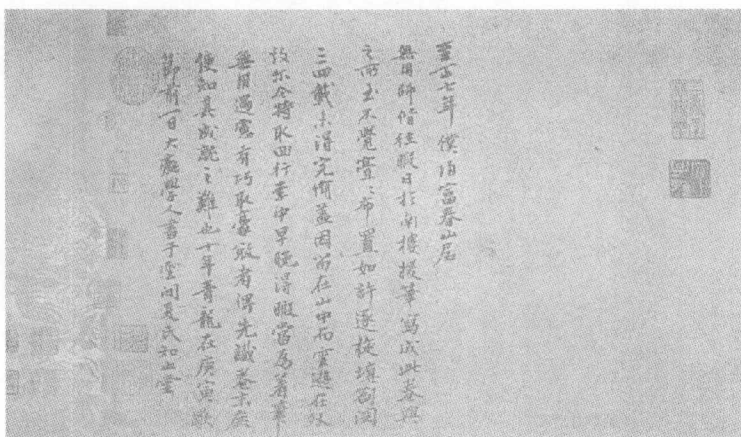 至正七年僕歸富春山居
無用師偕往暇日於南樓援筆寫成此卷興
之所至不覺亹亹布置如許逐旋填劄閱
三四載未得完備蓋因留在山中而雲遊在外
故爾今特取回行李中早晚得暇當為着筆
無用過慮有巧取豪敓者俾先識卷末庶
使知其成就之難也十年青龍在庚寅歜
節前一日大癡學人書于雲間夏氏知止堂